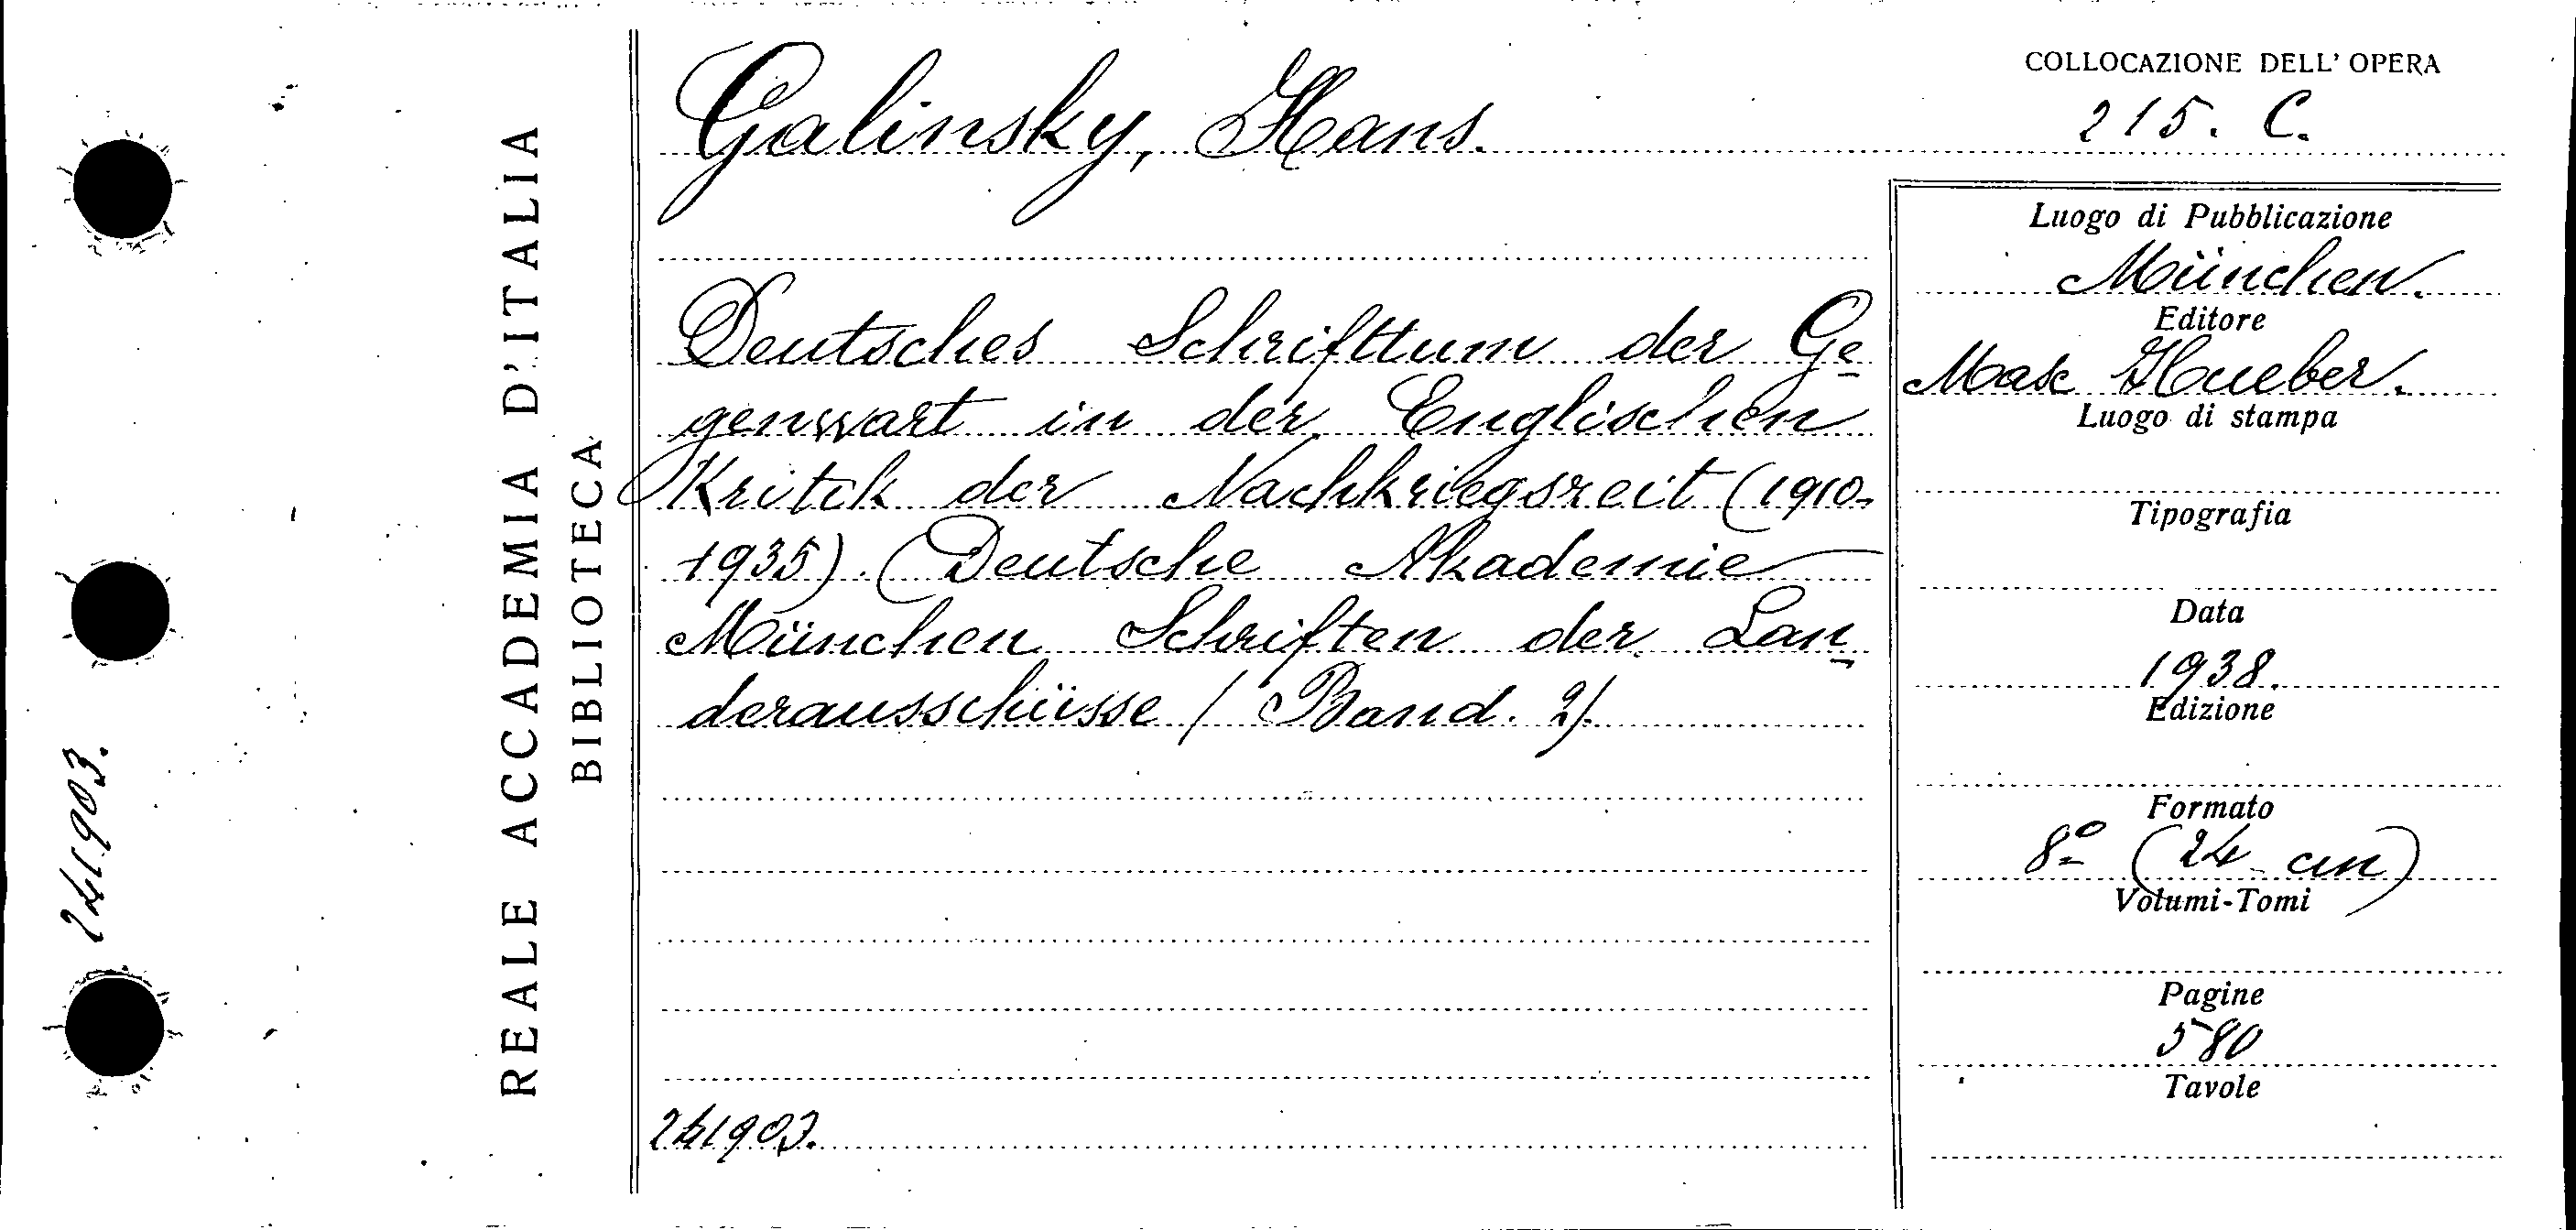 REALE ACCADEMIA D'ITALIA
BIBLIOTECA
241903.
Galinsky, Hans.
Deutsches Schrifttum der Ge-
genwart in der Englischen
Kritik der Nachkriegszeit (1910-
1935). (Deutsche Akademie
München Schriften der Lan-
derausschüsse / Band. 2).
241903.
COLLOCAZIONE DELL' OPERA
215. C.
Luogo di Pubblicazione
München.
Editore
Max Hueber.
Luogo di stampa
Tipografia
Data
1938.
Edizione
Formato
8º (24 cm)
Volumi-Tomi
Pagine
580
Tavole